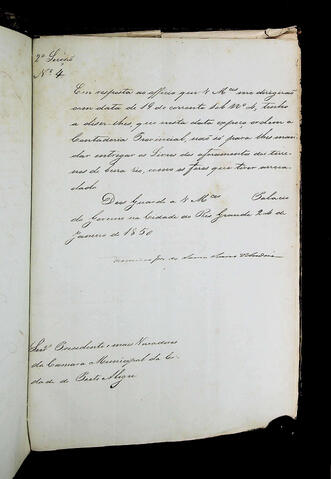 2ª Secção
Nº 4
Em resposta ao officio que V Mces me dirigirão
com data de 19 do corrente sob Nº 4, tenho
a dizer-lhes que nesta data expeço ordem a
Contadoria Provincial, não só para lhes man
dar entregar os Livros dos aforamentos dos terre
nos de beira rio, como os foros que tiver arreca
dado
Deos Guarde a V Mces Palacio
do Governo na Cidade do Rio Grande 24 de
Janeiro de 1850
Senres Presidente, e mais Vereadores
da Camara Municipal da Ci
dade de Porto Alegre